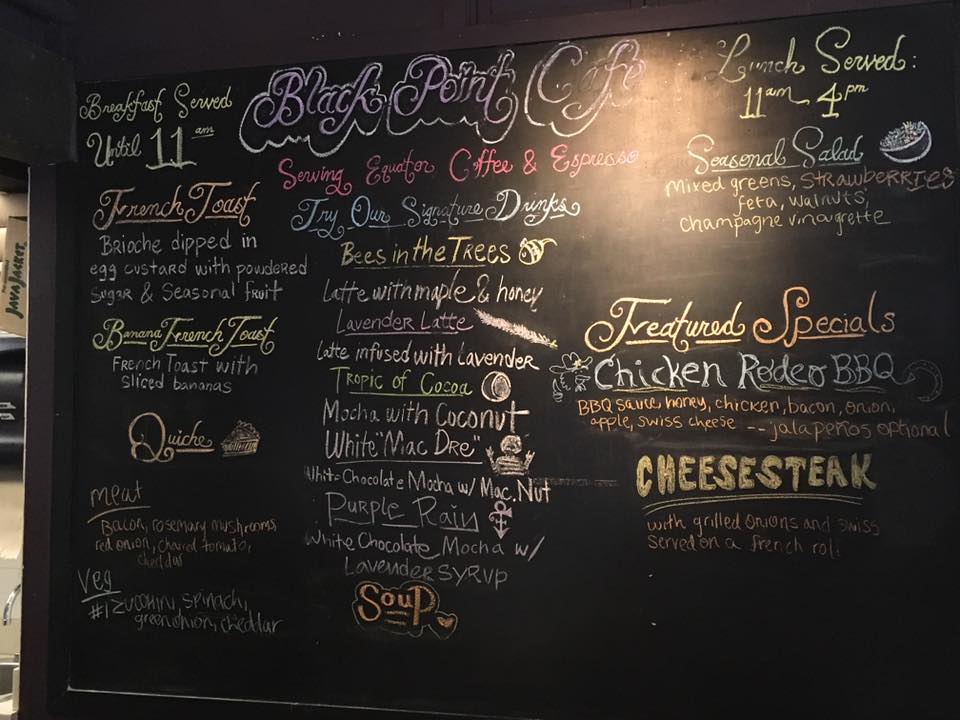 Breakfast Served
Until 11 am
French Toast
Brioche dipped in
egg custard with powdered
sugar & Seasonal fruit
Banana French Toast
French Toast with
sliced bananas
Quiche
meat
Bacon, rosemary mushrooms,
red onion, charred tomato,
cheddar
Veg
#1 zucchini, spinach,
green onion, cheddar
Black Point Café
Serving Equator Coffee & Espresso
Try Our Signature Drinks
Bees in the Trees
Latte with maple & honey
Lavender Latte
Latte infused with Lavender
Tropic of Cocoa
Mocha with Coconut
White "Mac Dre"
White Chocolate Mocha w/ Mac. Nut
Purple Rain
White Chocolate Mocha w/
Lavender syrup
Soup
Lunch Served:
11am - 4pm
Seasonal Salad
Mixed greens, strawberries
feta, walnuts,
champagne vinaigrette
Featured Specials
Chicken Rodeo BBQ
BBQ sauce, honey, chicken, bacon, onion,
apple, swiss cheese -- jalapeños optional
CHEESESTEAK
with grilled onions and swiss
served on a french roll
JAVA JACKET